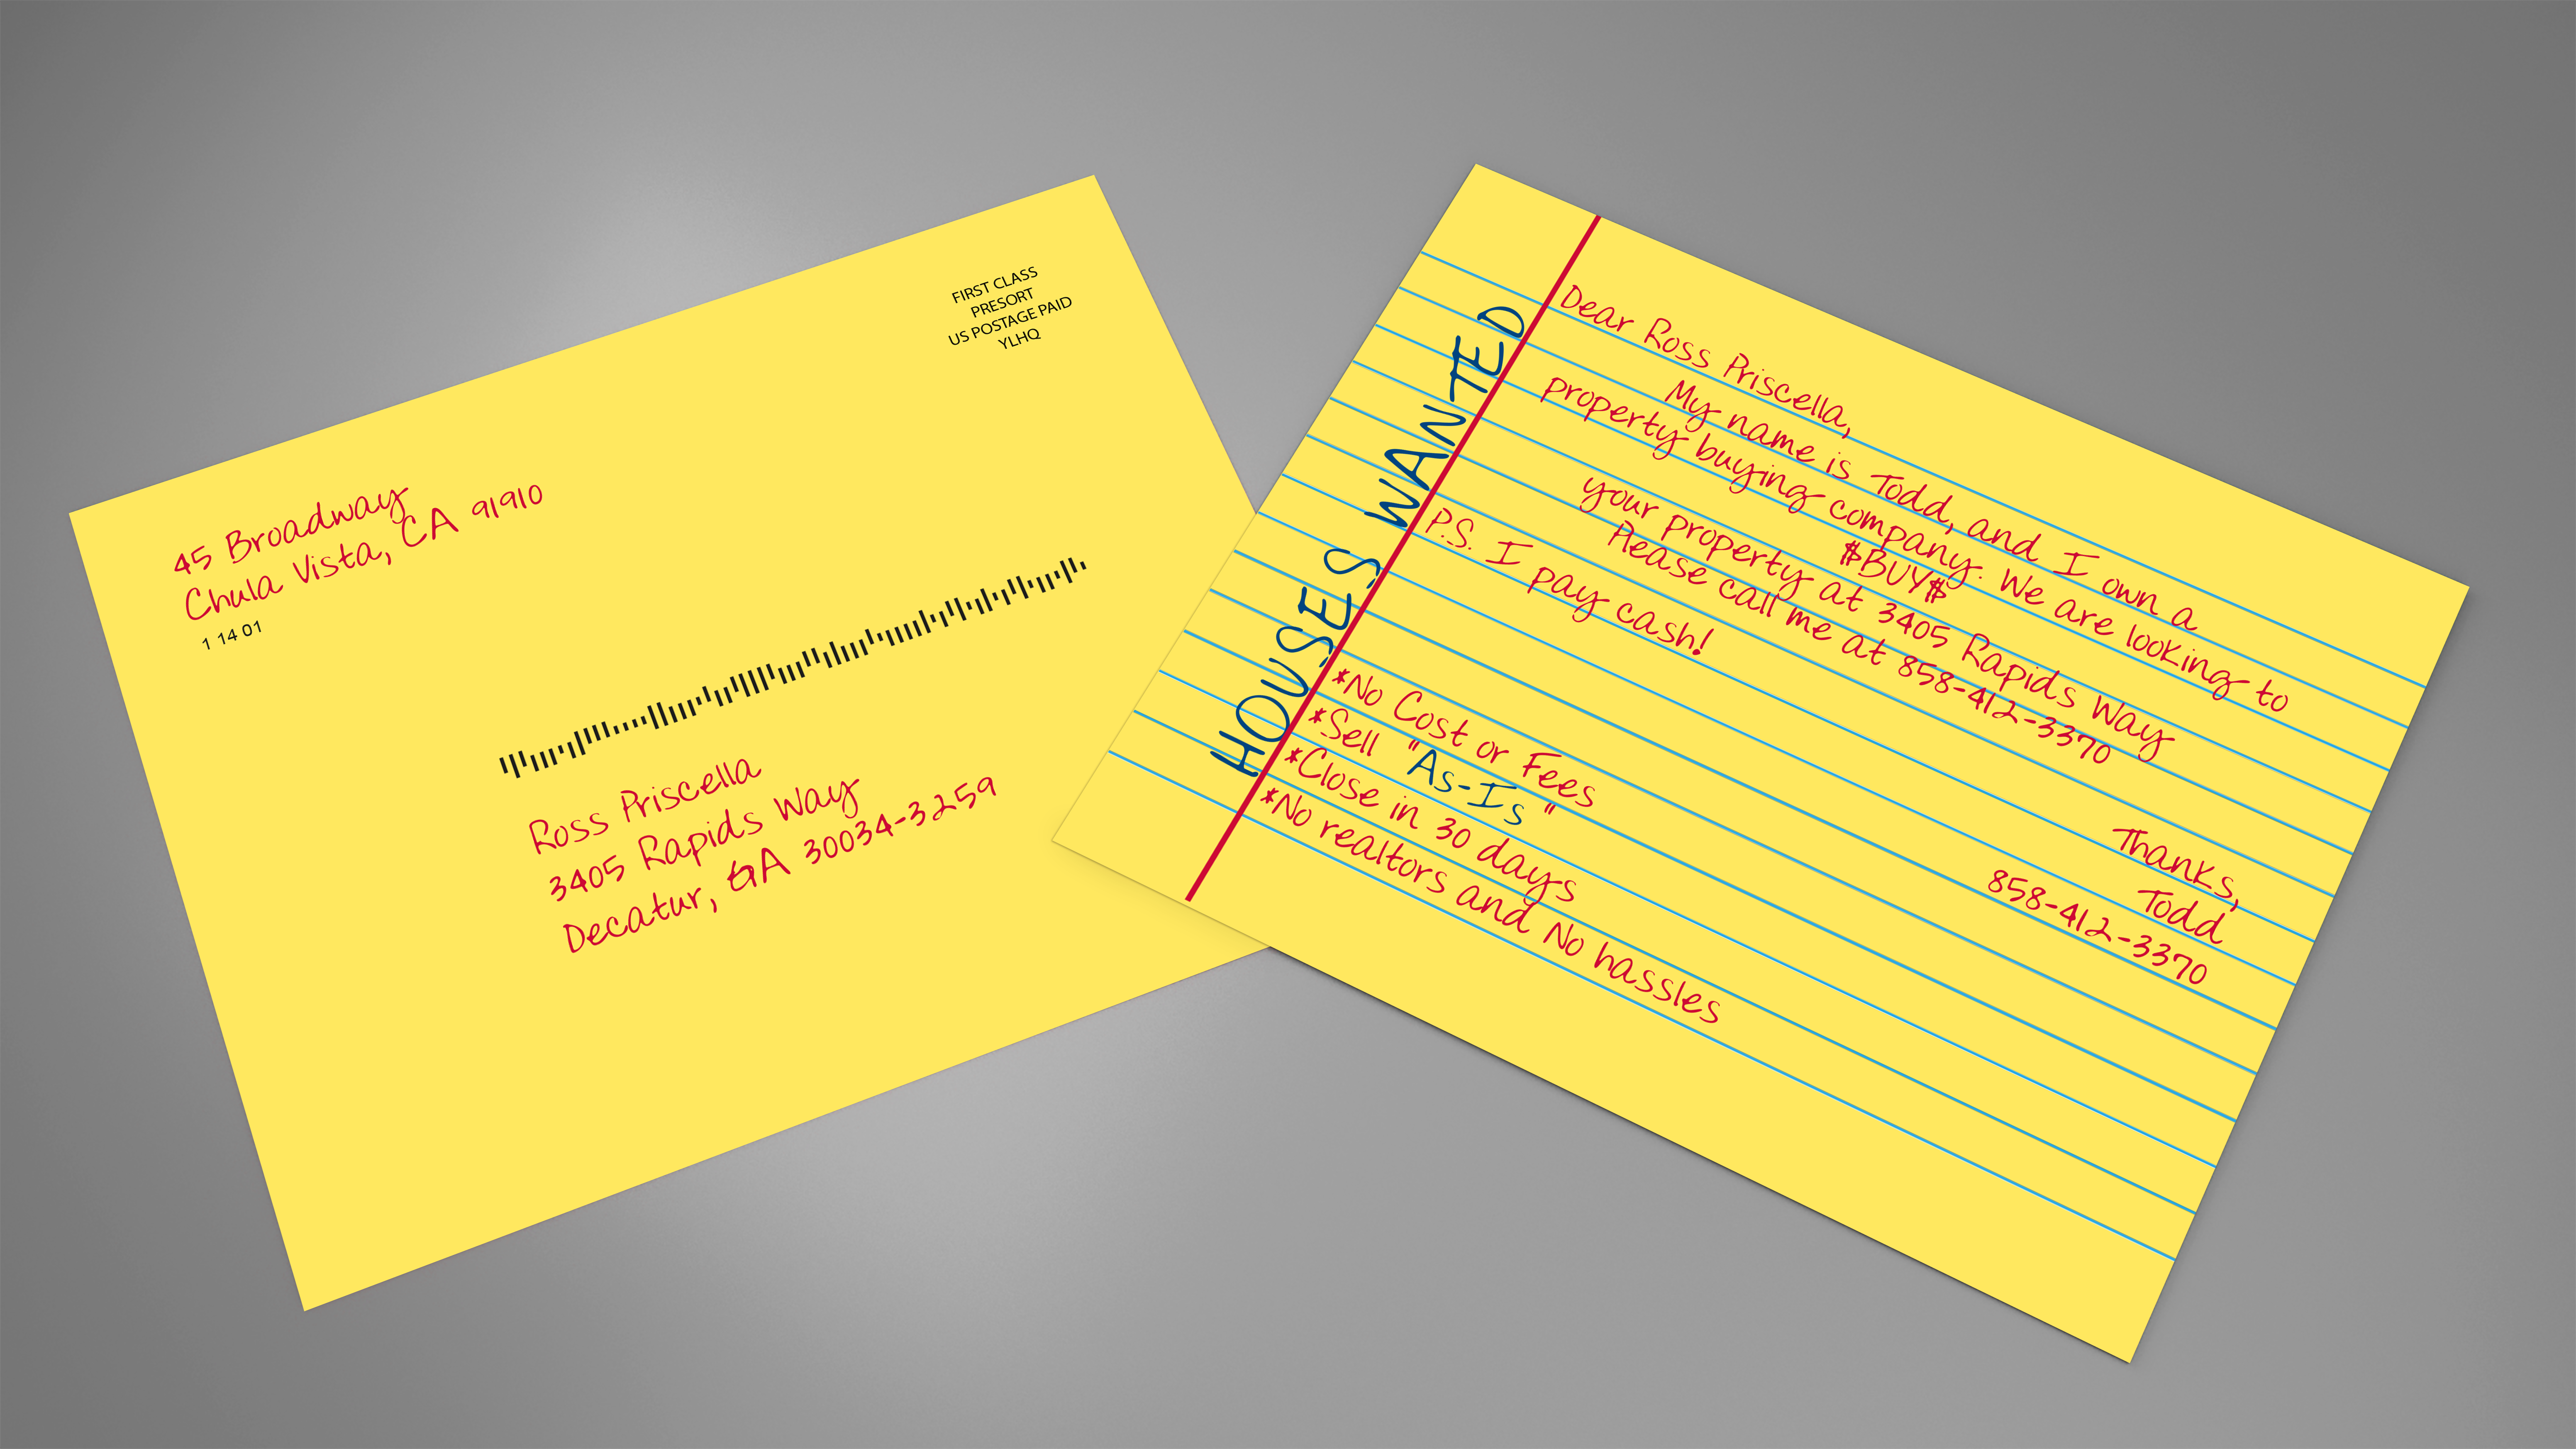 FIRST CLASS
PRESORT
US POSTAGE PAID
YLHQ
45 Broadway
Chula Vista, CA 91910
1 14 01
Ross Priscella
3405 Rapids Way
Decatur, GA 30034-3259
HOUSES WANTED
Dear Ross Priscella,
My name is Todd, and I own a
property buying company. We are looking to
$BUY$
your property at 3405 Rapids Way
Please call me at 858-412-3370
P.S. I pay cash!
Thanks,
Todd
858-412-3370
*No Cost or Fees
*Sell "As-Is"
*Close in 30 days
*No realtors and No hassles